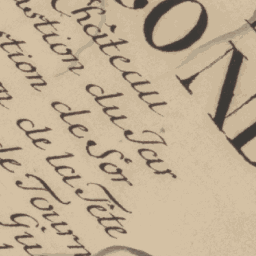 OND
Château
stion du Jar
stion de Sor
de la Tête
de Tourn
Gui